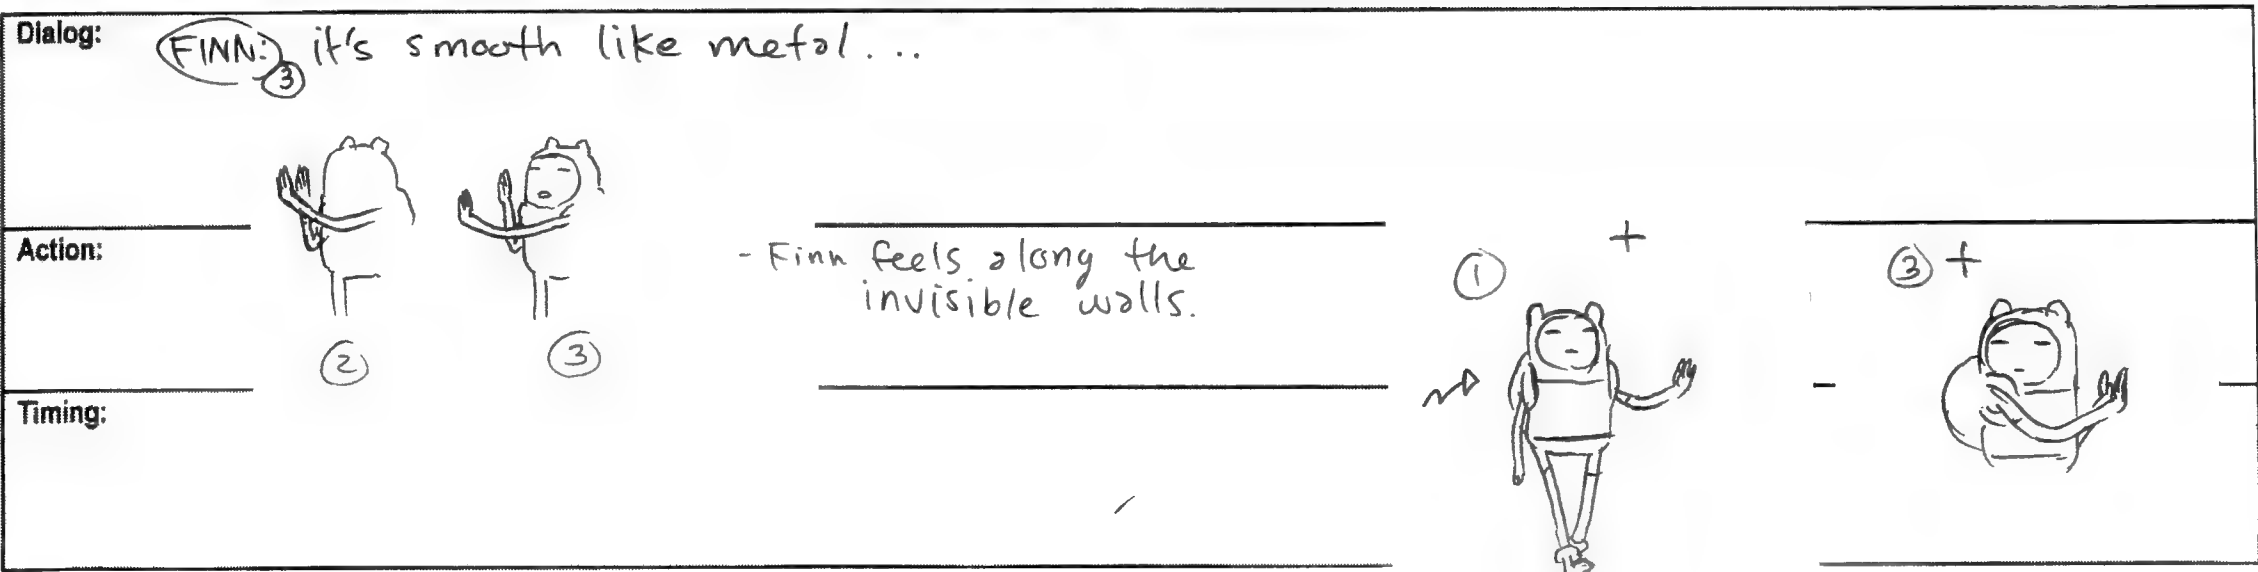 Dialog:
FINN: ③ it's smooth like metal...
Action:
- Finn feels along the
invisible walls.
① +
③ +
② ③
Timing: